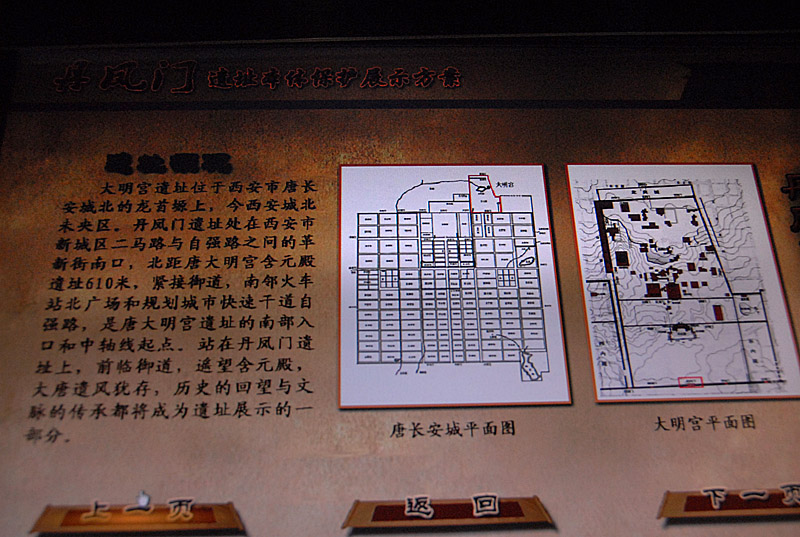 丹凤门 遗址本体保护展示方案
遗址概况
大明宫遗址位于西安市唐长
安城北的龙首塬上，今西安城北
未央区。丹凤门遗址处在西安市
新城区二马路与自强路之间的革
新街南口，北距唐大明宫含元殿
遗址610米，紧接御道，南邻火车
站北广场和规划城市快速干道自
强路，是唐大明宫遗址的南部入
口和中轴线起点。站在丹凤门遗
址上，前临御道，遥望含元殿，
大唐遗风犹存，历史的回望与文
脉的传承都将成为遗址展示的一
部分。
大明宫
唐长安城平面图
大明宫平面图
上一页
返回
下一页